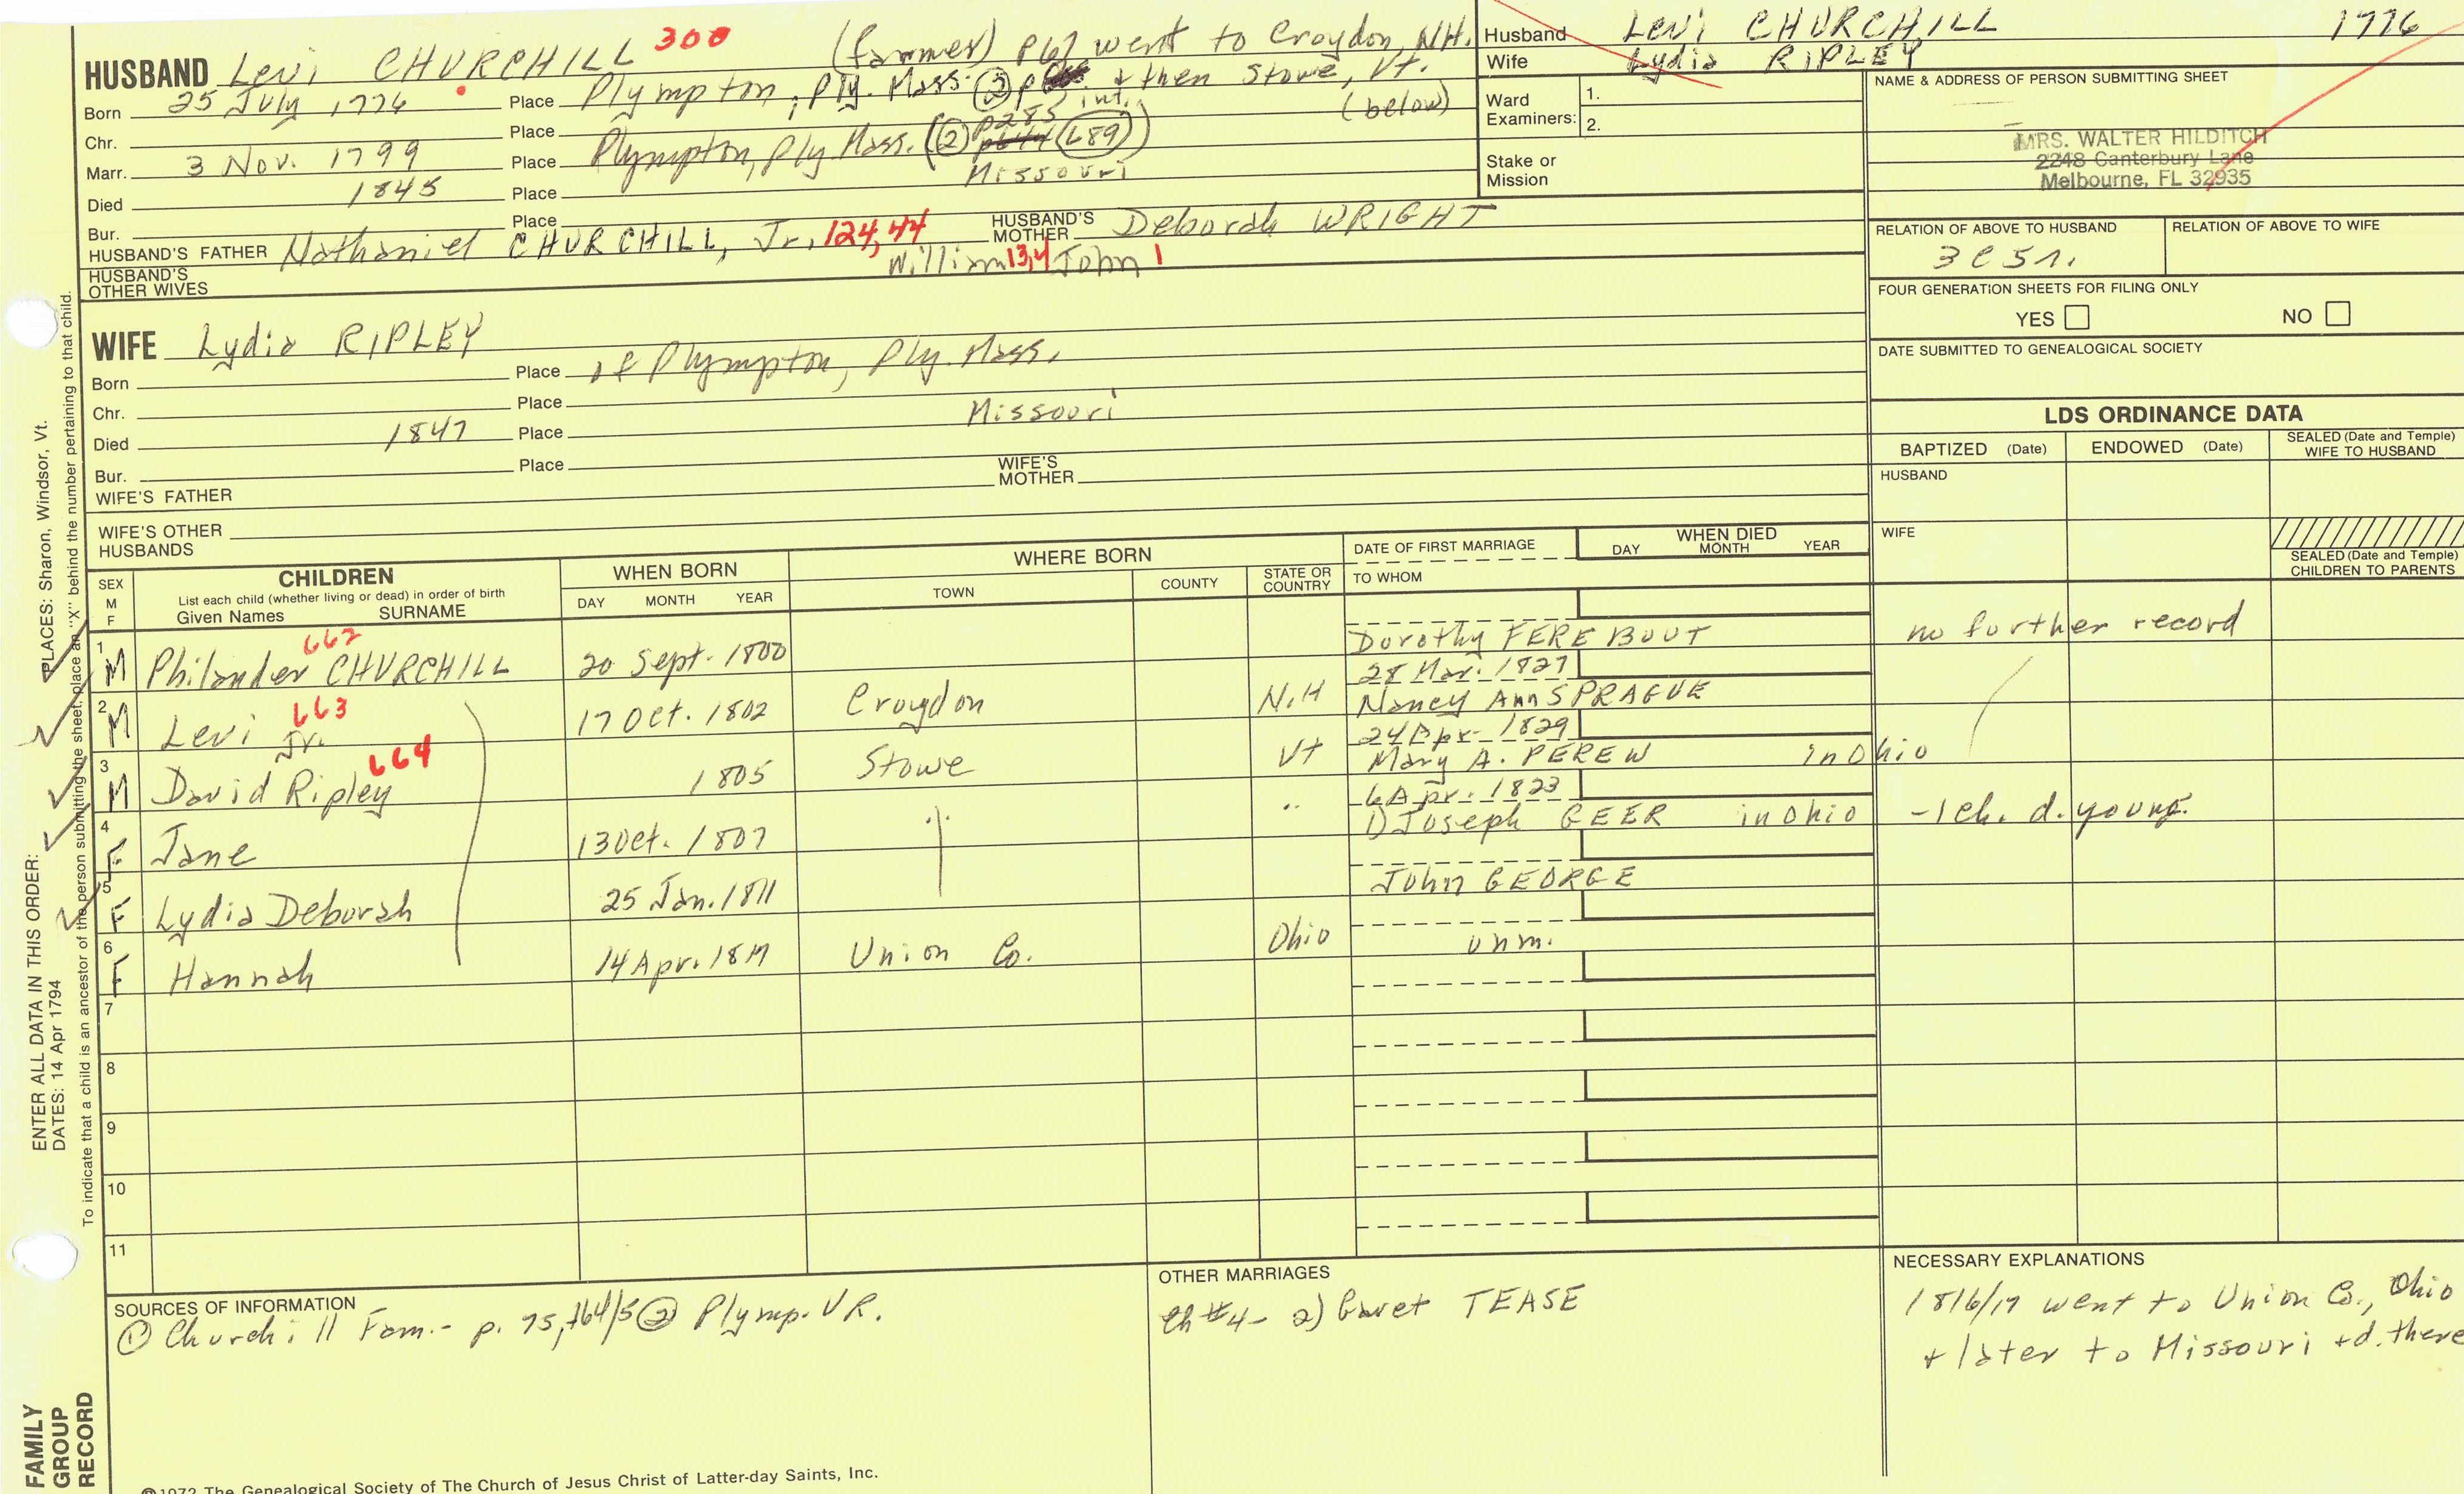 HUSBAND Levi CHURCHILL 300 (farmer) p67 went to Croydon, N.H.
Born 25 July 1776 Place Plympton, Ply. Mass. (2) p & then Stowe, Vt.
int. (below)
Chr. Place p285
Marr. 3 Nov. 1799 Place Plympton, Ply. Mass. (2) (L89)
Died 1845 Place Missouri
Bur. Place
HUSBAND'S FATHER Nathaniel CHURCHILL, Jr. 124, 44 HUSBAND'S MOTHER Deborah WRIGHT
William 13, 4 John 1
HUSBAND'S OTHER WIVES
Husband Levi CHURCHILL 1776
Wife Lydia RIPLEY
Ward Examiners: 1.
2.
Stake or Mission
NAME & ADDRESS OF PERSON SUBMITTING SHEET
MRS. WALTER HILDITCH
2248 Canterbury Lane
Melbourne, FL 32935
RELATION OF ABOVE TO HUSBAND RELATION OF ABOVE TO WIFE
3c5r.
FOUR GENERATION SHEETS FOR FILING ONLY
YES NO
DATE SUBMITTED TO GENEALOGICAL SOCIETY
WIFE Lydia RIPLEY
Born Place of Plympton, Ply. Mass.
Chr. Place
Died 1847 Place Missouri
Bur. Place
WIFE'S FATHER WIFE'S MOTHER
WIFE'S OTHER HUSBANDS
LDS ORDINANCE DATA
BAPTIZED (Date) ENDOWED (Date) SEALED (Date and Temple) WIFE TO HUSBAND
HUSBAND
WIFE
SEALED (Date and Temple) CHILDREN TO PARENTS
SEX M F
CHILDREN
List each child (whether living or dead) in order of birth
Given Names SURNAME
WHEN BORN
DAY MONTH YEAR
WHERE BORN
TOWN COUNTY STATE OR COUNTRY
DATE OF FIRST MARRIAGE
TO WHOM
WHEN DIED
DAY MONTH YEAR
1 M Philander CHURCHILL 662 20 Sept. 1800 Dorothy FEREBOUT no further record
28 Mar. 1827
2 M Levi Jr. 663 17 Oct. 1802 Croydon N.H Nancy Ann SPRAGUE
24 Apr. 1829
3 M David Ripley 664 1805 Stowe Vt Mary A. PEREW in Ohio
6 Apr. 1823
4 F Jane 13 Oct. 1807 " " 1) Joseph GEER in Ohio - 1 ch. d. young.
5 F Lydia Deborah 25 Jan. 1811 John GEORGE
6 F Hannah 14 Apr. 1817 Union Co. Ohio unm.
7
8
9
10
11
SOURCES OF INFORMATION
(1) Church:ll Fam. - p. 75, 164/5 (2) Plymp. V.R.
OTHER MARRIAGES
Ch #4 - 2) Garet TEASE
NECESSARY EXPLANATIONS
1816/17 went to Union Co., Ohio
+ later to Missouri + d. there
©1972 The Genealogical Society of The Church of Jesus Christ of Latter-day Saints, Inc.
FAMILY GROUP RECORD
ENTER ALL DATA IN THIS ORDER:
DATES: 14 Apr 1794
PLACES: Sharon, Windsor, Vt.
To indicate that a child is an ancestor of the person submitting the sheet, place an "X" behind the number pertaining to that child.